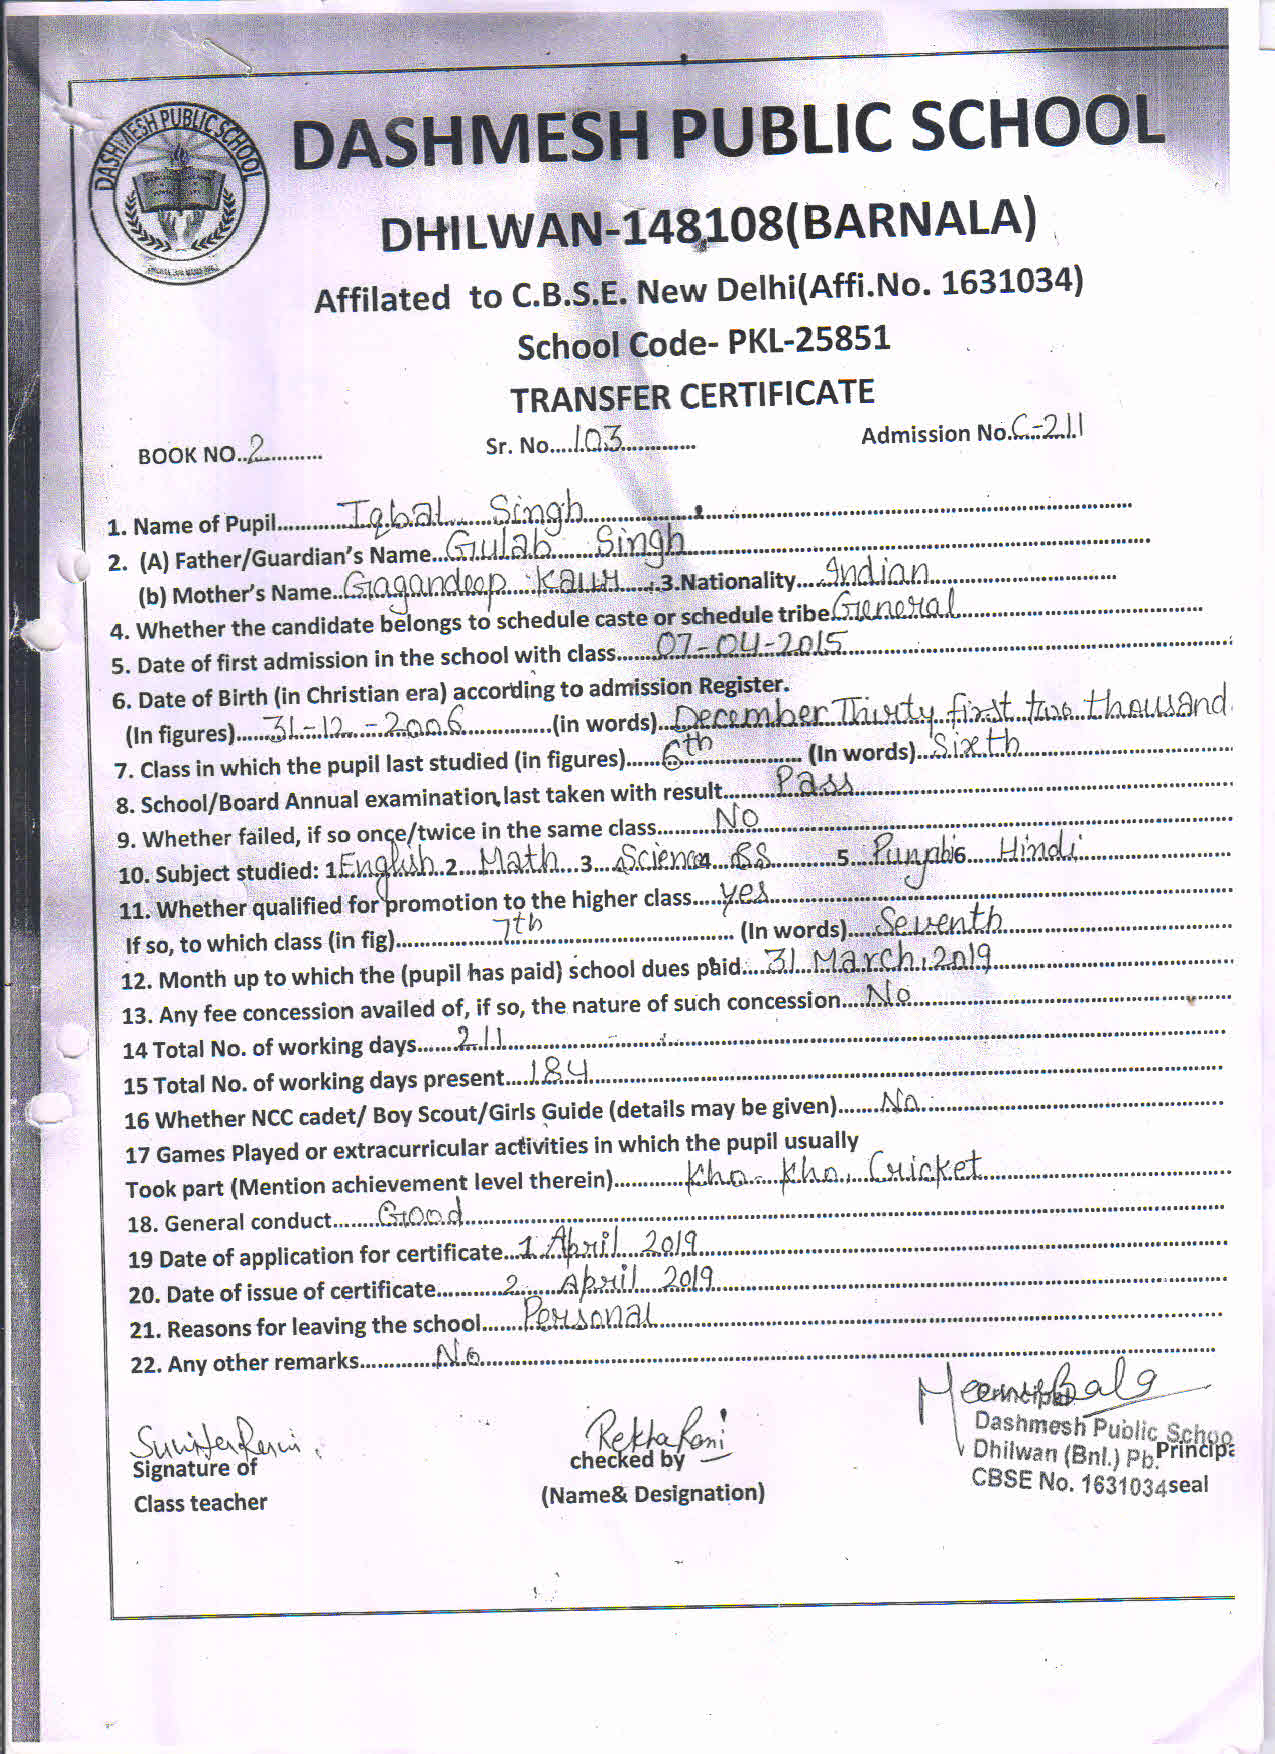 DASHMESH PUBLIC SCHOOL
DASHMESH PUBLIC SCHOOL
DHILWAN-148108(BARNALA)
Affilated to C.B.S.E. New Delhi(Affi.No. 1631034)
School Code- PKL-25851
TRANSFER CERTIFICATE
BOOK NO..2.......... Sr. No....103............ Admission No.C-211
1. Name of Pupil............Iqbal Singh
2. (A) Father/Guardian's Name...Gulab Singh
(b) Mother's Name..Gagandeep Kaur 3.Nationality....Indian
4. Whether the candidate belongs to schedule caste or schedule tribe General
5. Date of first admission in the school with class......07-04-2015
6. Date of Birth (in Christian era) according to admission Register.
(In figures).....31-12-2006..............(in words)..December Thirty first two thousand
7. Class in which the pupil last studied (in figures)......6th.................. (In words)..Sixth
8. School/Board Annual examination, last taken with result.........Pass
9. Whether failed, if so once/twice in the same class..........No
10. Subject studied: 1English..2...Math...3...Science4...SS...........5...Punjabi6.....Hindi
11. Whether qualified for promotion to the higher class.....yes
If so, to which class (in fig)..................7th.................. (In words).....Seventh
12. Month up to which the (pupil has paid) school dues paid....31 March, 2019
13. Any fee concession availed of, if so, the nature of such concession....No
14 Total No. of working days......211
15 Total No. of working days present....184
16 Whether NCC cadet/ Boy Scout/Girls Guide (details may be given).......No
17 Games Played or extracurricular activities in which the pupil usually
Took part (Mention achievement level therein)............Kho-Kho, Cricket
18. General conduct.......Good
19 Date of application for certificate...1 April 2019
20. Date of issue of certificate...........2 April 2019
21. Reasons for leaving the school.......Personal
22. Any other remarks............No
Rekha Rani
Dashmesh Public Schoo
Signature of checked by Dhilwan (Bnl.) Pb. Principa
Class teacher (Name& Designation) CBSE No. 1631034 seal